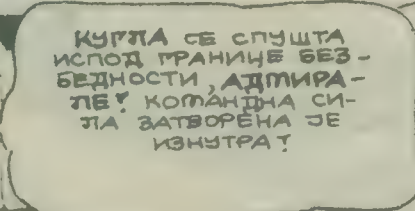 КУГЛА СЕ СПУШТА
ИСПОД ГРАНИЦЕ БЕЗ-
БЕДНОСТИ, АДМИРА-
ЛЕ! КОМАНДНА СИ-
ЛА ЗАТВОРЕНА ЈЕ
ИЗНУТРА!